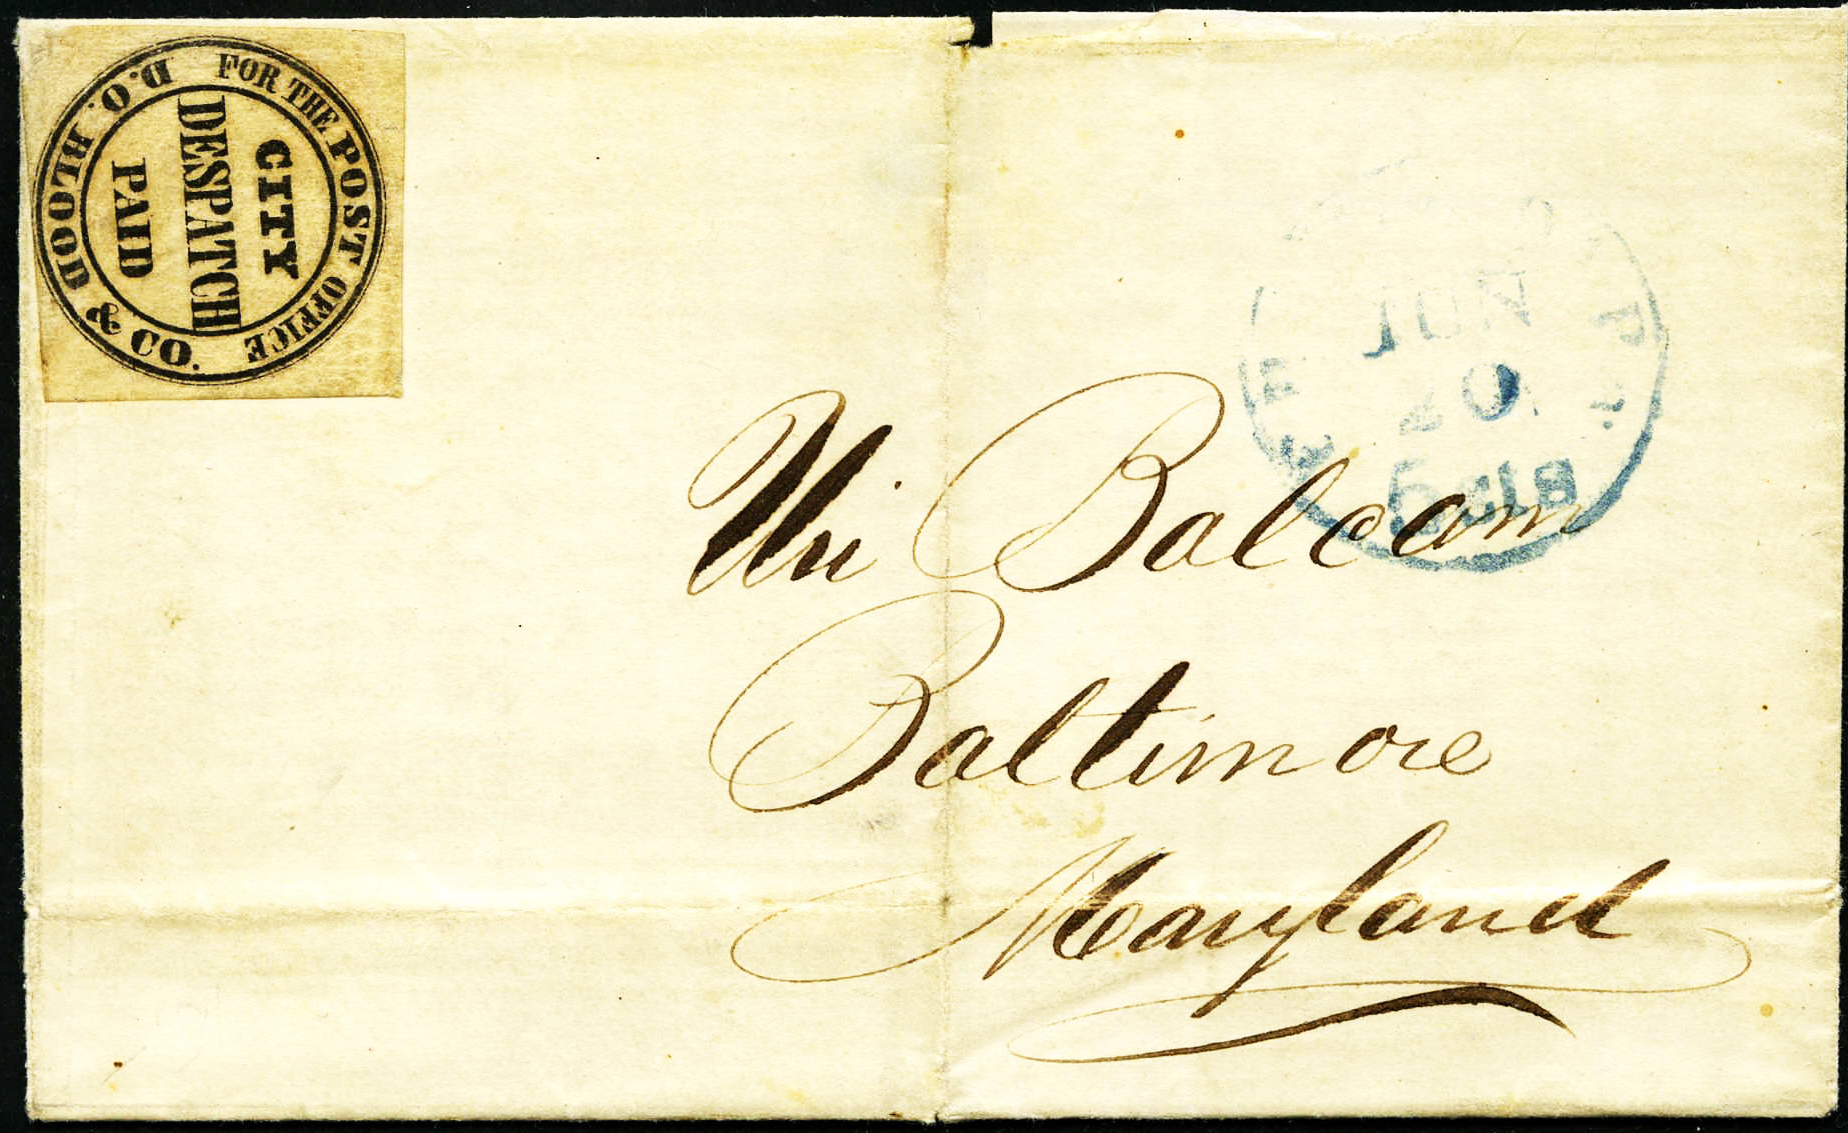 D.O. BLOOD & CO.
FOR THE POST OFFICE
CITY
DESPATCH
PAID
JUN
20
5 cts
Balcam
Baltimore
Maryland